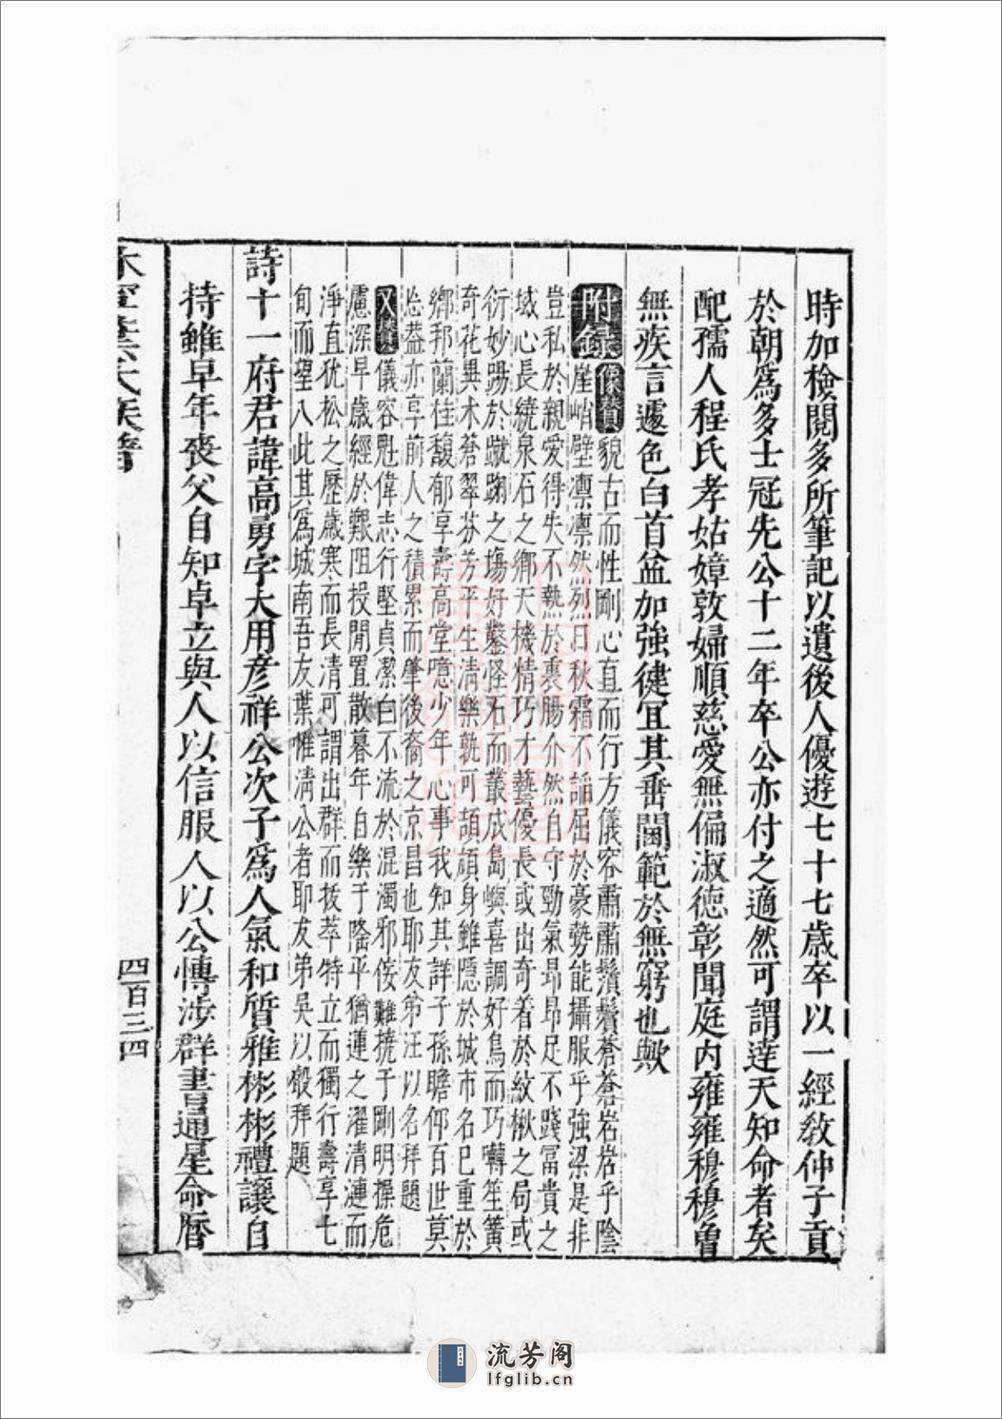 時加檢閱多所筆記以遺後人優遊七十七歲卒以一經敎仲子貢
於朝爲多士冠先公十二年卒公亦付之適然可謂達天知命者矣
配孺人程氏孝姑嫜敦婦順慈愛無偏淑德彰聞庭内雍雍穆穆曾
無疾言遽色白首益加強健冝其垂閫範於無窮也歟
附錄
像贊
貌古而性剛心直而行方儀容肅肅鬚鬢蒼蒼岩岩乎陰
崖峭壁凛凛然烈日秋霜不詘屈於豪勢能攝服乎強梁是非
豈私於親愛得失不熱於裏腸介然自守勁氣昻昻足不踐冨貴之
域心長繞泉石之鄉天機情巧才藝優長或出奇着於紋楸之局或
衍妙踢於蹴踘之塲好鑿怪石而叢成島嶼喜調好鳥而巧囀笙簧
奇花異木蒼翠芬芳平生淸樂孰可頡頏身雖隱於城市名已重於
鄉邦蘭桂馥郁享壽高堂噫少年心事我知其詳子孫瞻仰百世莫
忘葢亦享前人之積累而肇後裔之京昌也耶友弟汪以名拜題
又像贊
儀容魁偉志行堅貞潔白不流於混濁邪侫難撓于剛明操危
慮深早歲經於艱阻投閒置散暮年自樂于隆平猶蓮之濯清漣而
淨直犹松之歷歲寒而長清可謂出群而拔萃特立而獨行壽享七
旬而望八此其爲城南吾友葉惟淸公者耶友弟吳以殷拜題
詩十一府君諱高勇字大用彦祥公次子爲人氣和質雅彬彬禮讓自
持雖早年喪父自知卓立與人以信服人以公慱涉群書通星命曆
四百三四
流芳阁
lfglib.cn